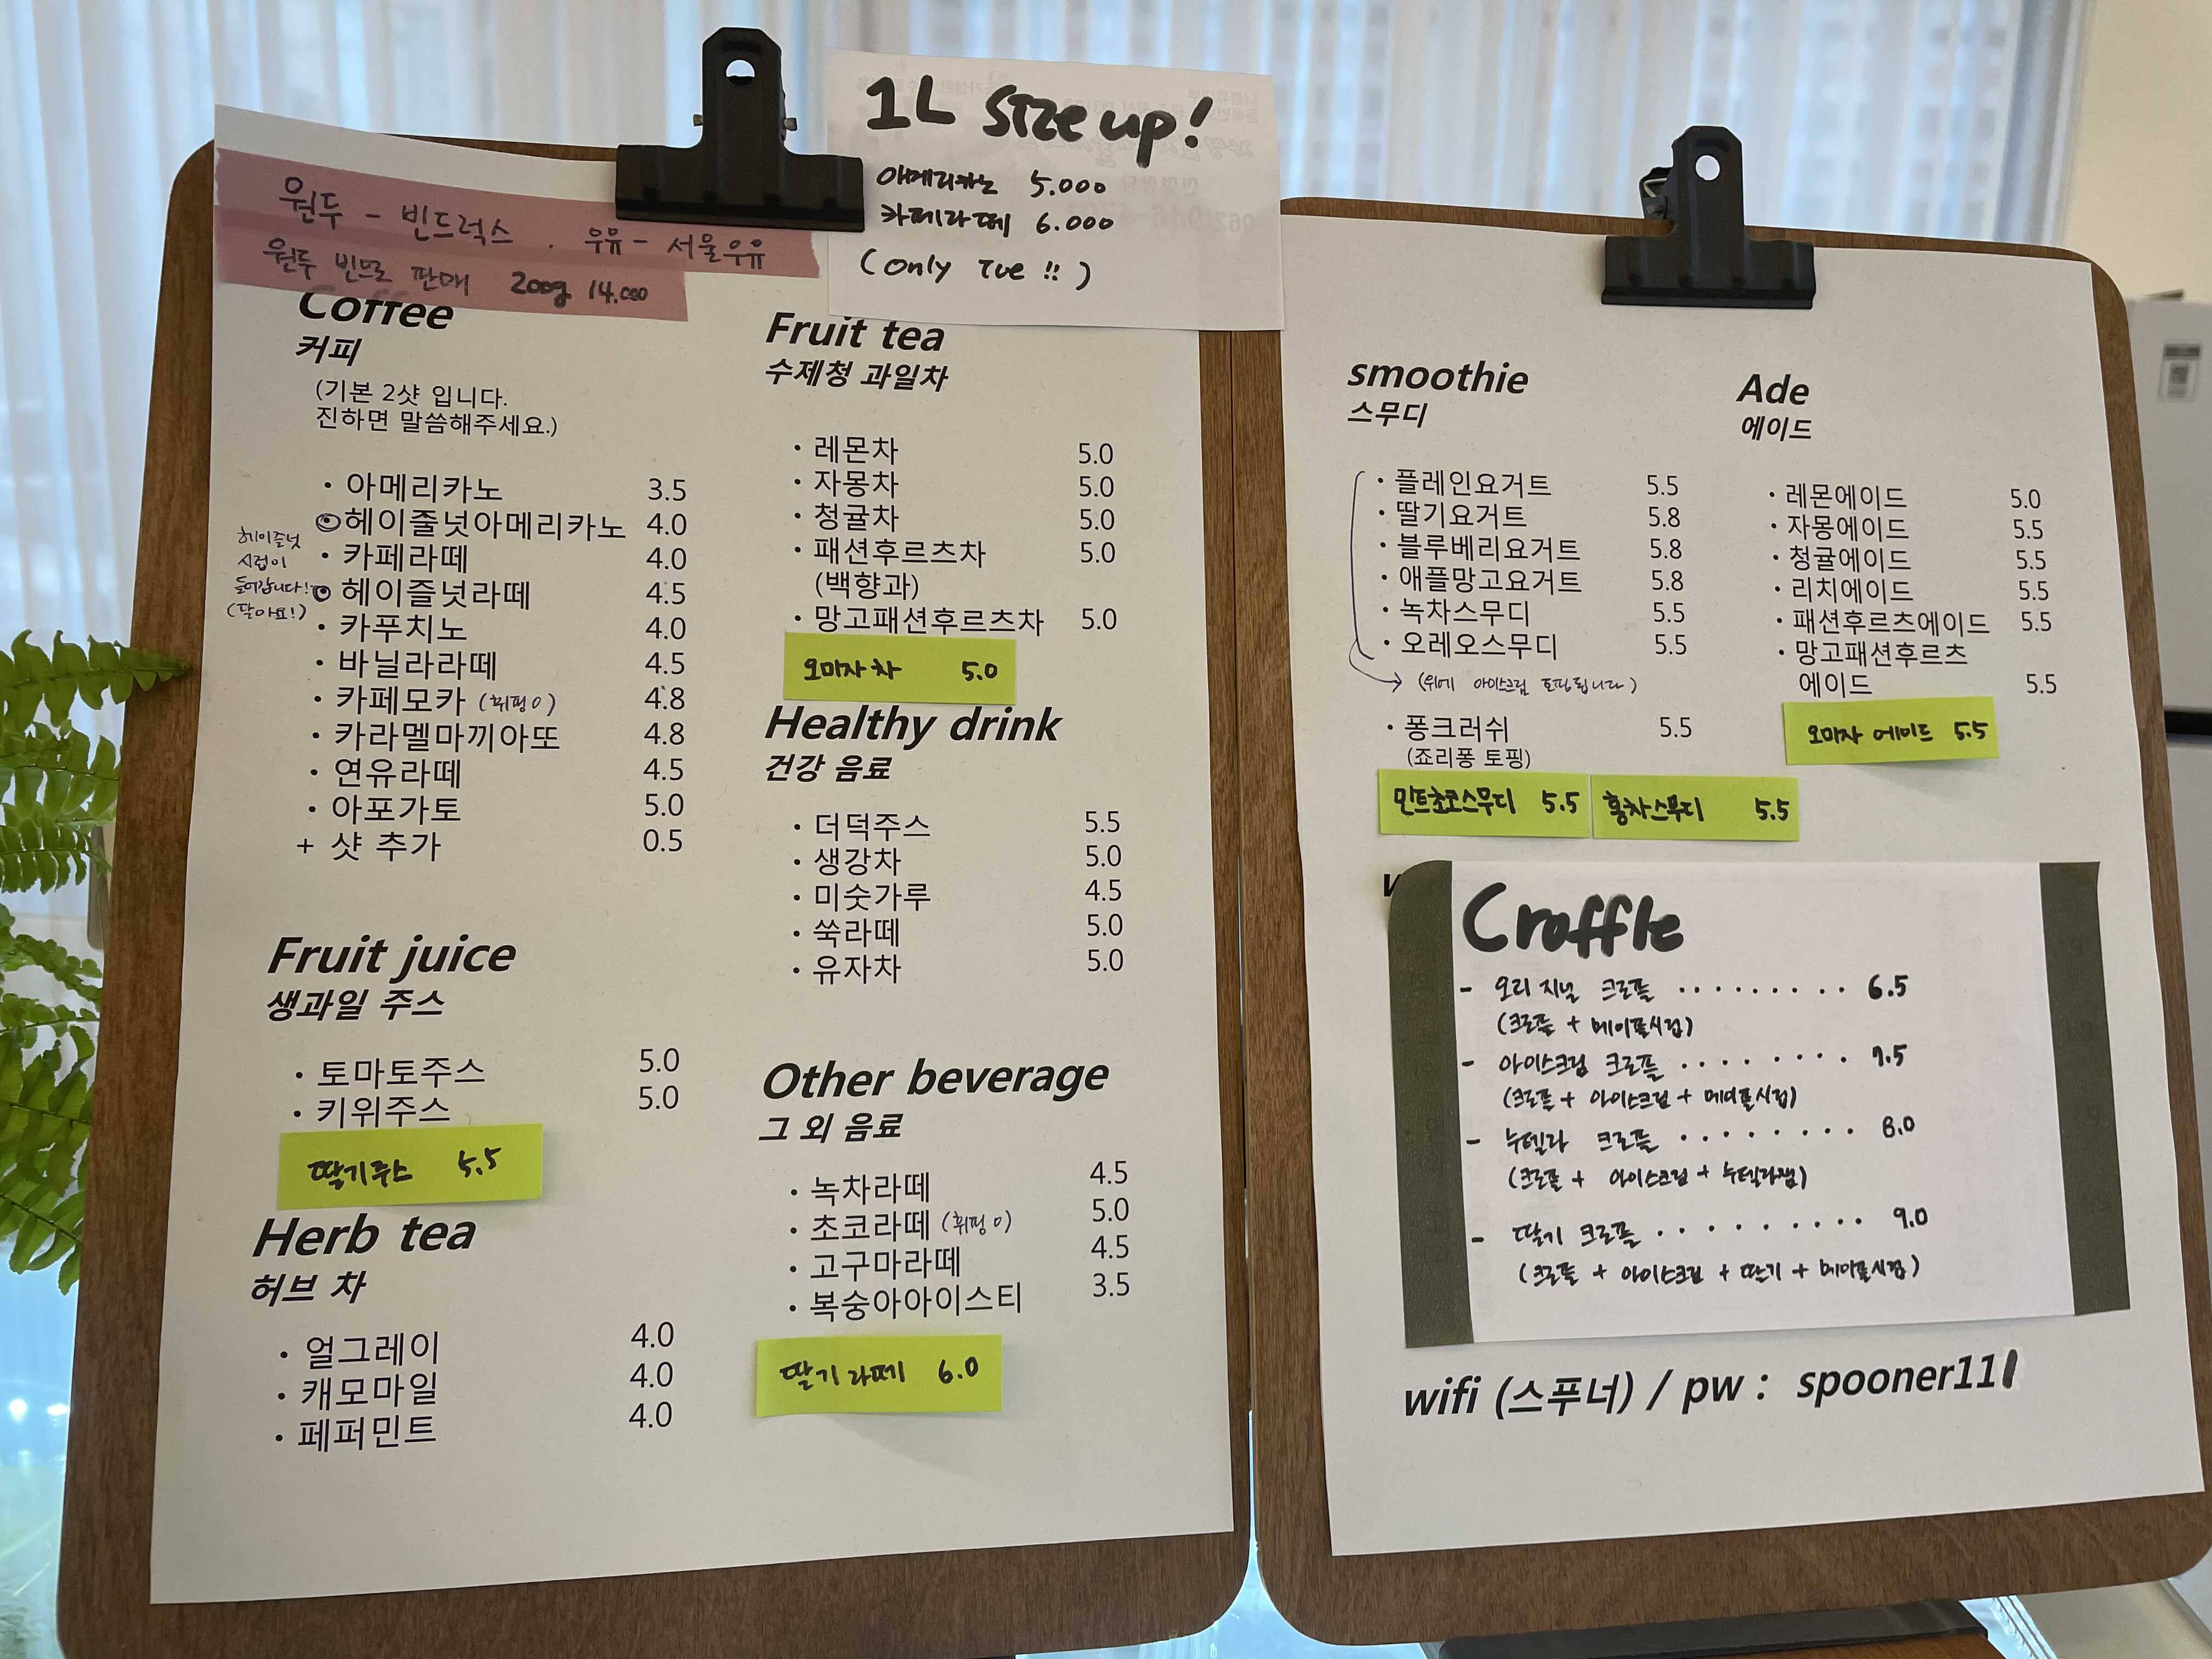 원두 - 빈드럭스 . 우유 - 서울우유
원두 빈으로 판매 200g 14.000
1L size up!
아메리카노 5.000
카페라떼 6.000
(only Tue !!)
Coffee
커피
(기본 2샷 입니다.
진하면 말씀해주세요.)
· 아메리카노 3.5
헤이즐넛아메리카노 4.0
· 카페라떼 4.0
헤이즐넛라떼 4.5
헤이즐넛
시럽이
들어갑니다!
(달아요!)
· 카푸치노 4.0
· 바닐라라떼 4.5
· 카페모카 (휘핑 o) 4.8
· 카라멜마끼아또 4.8
· 연유라떼 4.5
· 아포가토 5.0
+ 샷 추가 0.5
Fruit juice
생과일 주스
· 토마토주스 5.0
· 키위주스 5.0
딸기주스 5.5
Herb tea
허브 차
· 얼그레이 4.0
· 캐모마일 4.0
· 페퍼민트 4.0
Fruit tea
수제청 과일차
· 레몬차 5.0
· 자몽차 5.0
· 청귤차 5.0
· 패션후르츠차 5.0
(백향과)
· 망고패션후르츠차 5.0
오미자차 5.0
Healthy drink
건강 음료
· 더덕주스 5.5
· 생강차 5.0
· 미숫가루 4.5
· 쑥라떼 5.0
· 유자차 5.0
Other beverage
그 외 음료
· 녹차라떼 4.5
· 초코라떼 (휘핑 o) 5.0
· 고구마라떼 4.5
· 복숭아아이스티 3.5
딸기라떼 6.0
smoothie
스무디
· 플레인요거트 5.5
· 딸기요거트 5.8
· 블루베리요거트 5.8
· 애플망고요거트 5.8
· 녹차스무디 5.5
· 오레오스무디 5.5
(위에 아이스크림 토핑됩니다)
· 퐁크러쉬 5.5
(죠리퐁 토핑)
민트초코스무디 5.5
홍차스무디 5.5
Ade
에이드
· 레몬에이드 5.0
· 자몽에이드 5.5
· 청귤에이드 5.5
· 리치에이드 5.5
· 패션후르츠에이드 5.5
· 망고패션후르츠
에이드 5.5
오미자 에이드 5.5
Croffle
- 오리지널 크로플 ········· 6.5
(크로플 + 메이플시럽)
- 아이스크림 크로플 ········ 7.5
(크로플 + 아이스크림 + 메이플시럽)
- 누텔라 크로플 ········· 8.0
(크로플 + 아이스크림 + 누텔라잼)
- 딸기 크로플 ·········· 9.0
(크로플 + 아이스크림 + 딸기 + 메이플시럽)
wifi (스푸너) / pw : spooner111